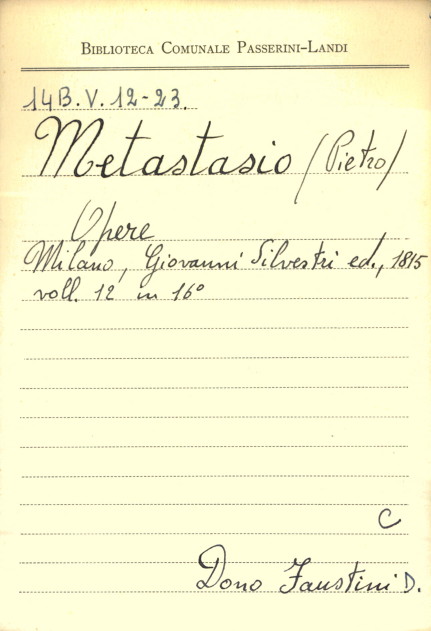 Biblioteca Comunale Passerini-Landi
14B.V.12-23.
Metastasio (Pietro)
Opere
Milano, Giovanni Silvestri ed., 1815
voll. 12 in 16°
C
Dono Faustini D.